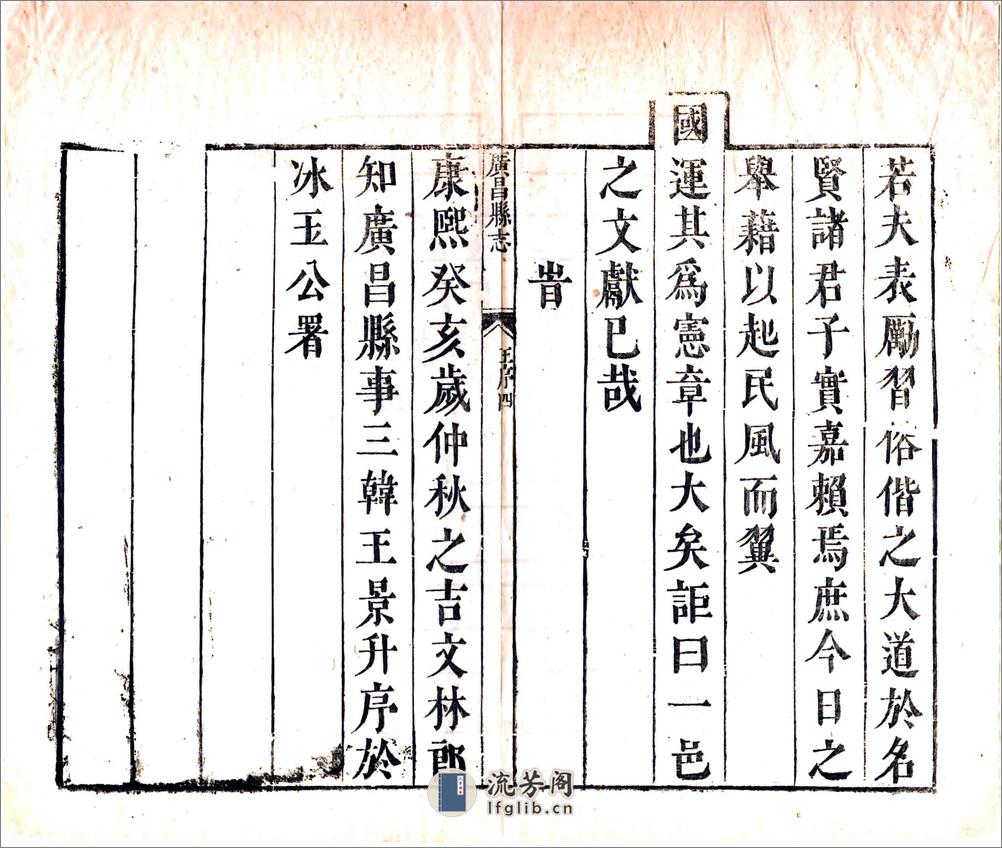 若夫表勵習俗偕之大道於名
賢諸君子實嘉賴焉庶今日之
舉藉以起民風而翼
國運其為憲章也大矣詎曰一邑
之文獻已哉
旹
廣昌縣志
王序四
康熙癸亥歲仲秋之吉文林郎
知廣昌縣事三韓王景升序於
冰玉公署
流芳阁
lfglib.cn